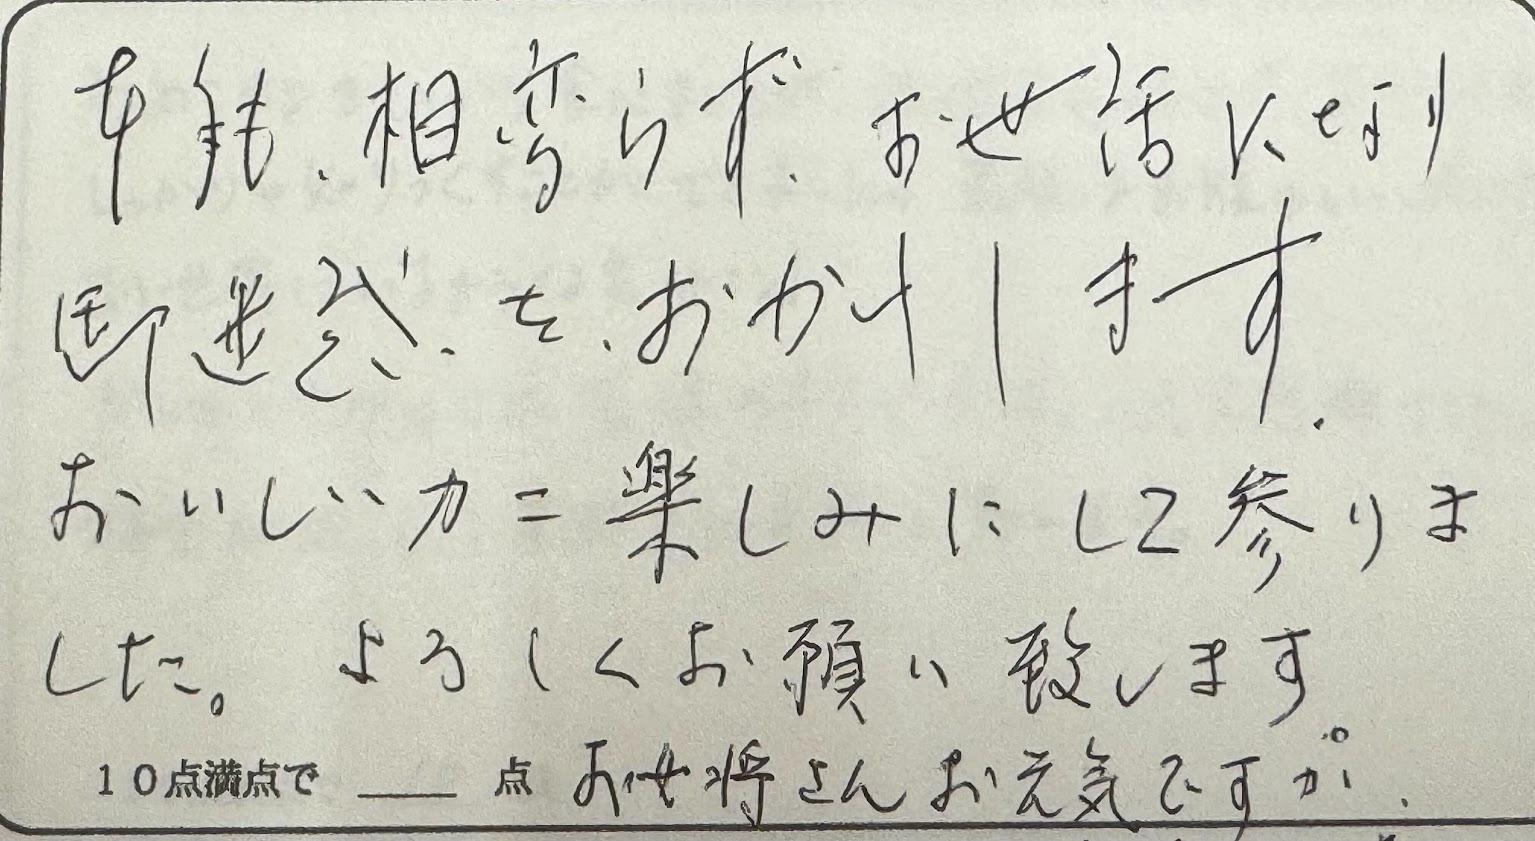 本年も、相変らず、お世話になり
御迷惑、を、おかけします.
おいしいカニ楽しみにして参りま
した。 よろしくお願い致します。
10点満点で ___ 点 お女将さんお元気ですか.